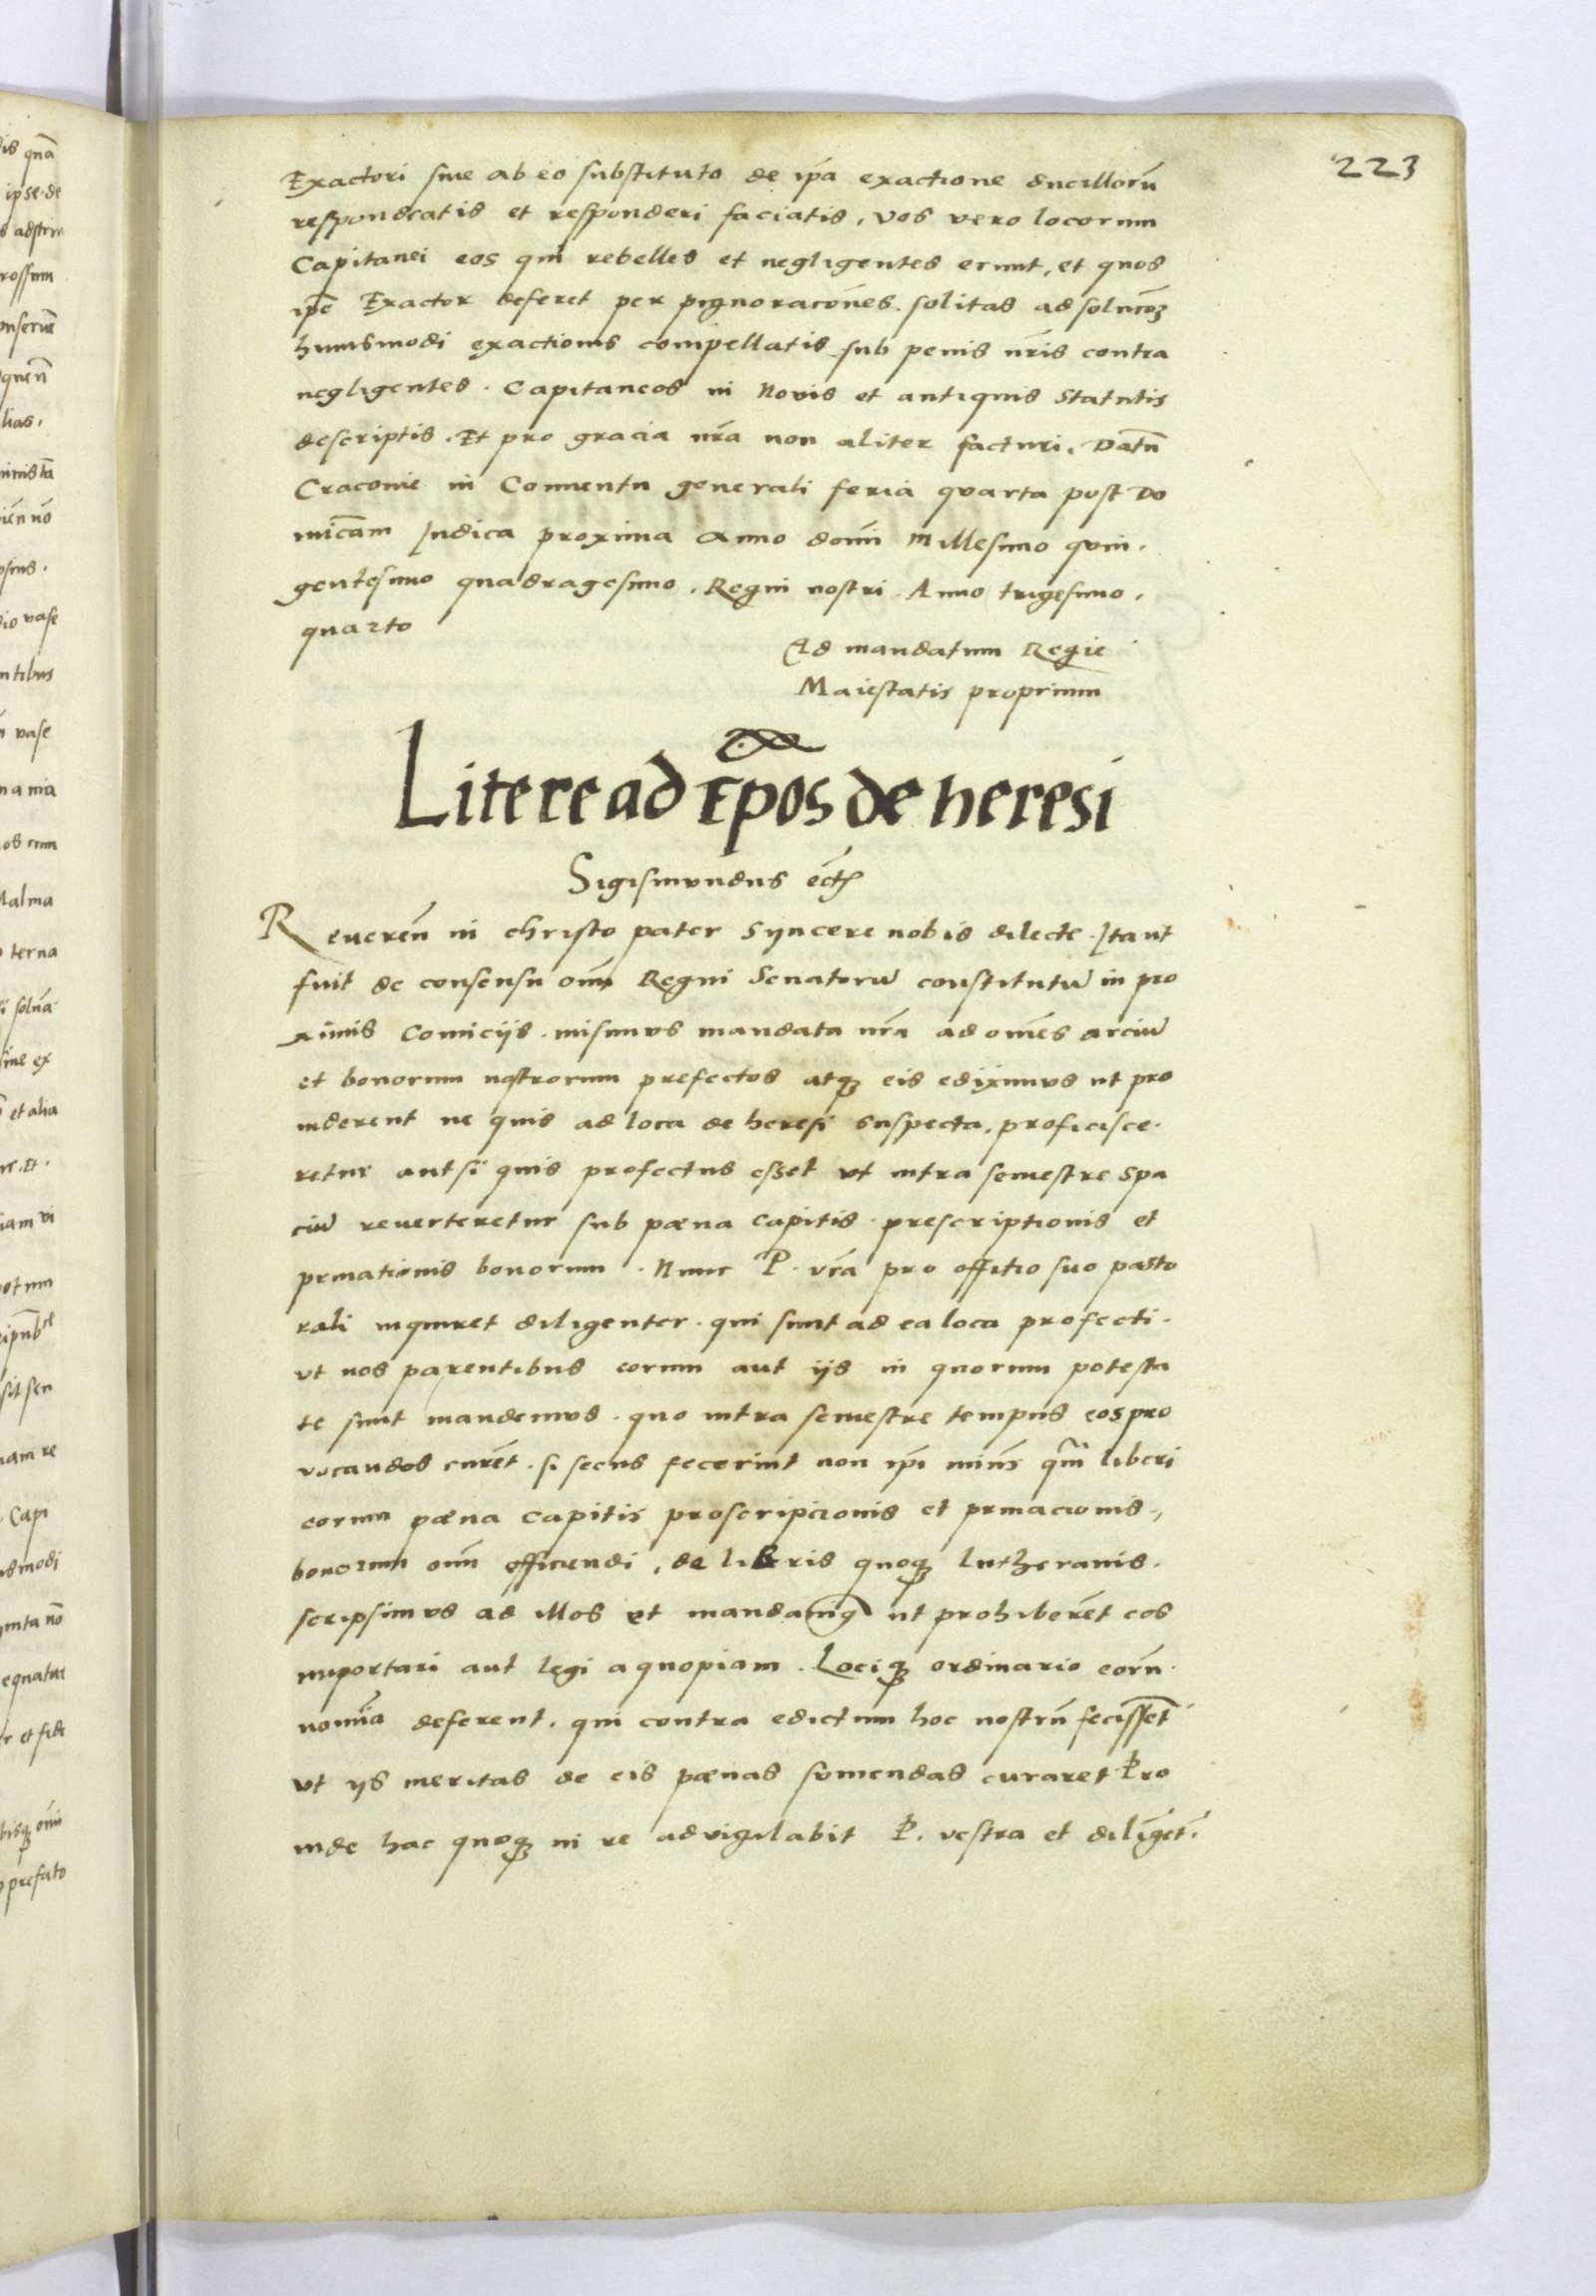 223
Exactori siue ab eo substituto de ip̃a exactione ducillorũ
respondeatis et responderi faciatis, vos vero locorum
Capitanei eos qui rebelles et negligentes erunt, et quos
ip̃e Exactor deferet per pignoracõnes . solitas ad solucõꝫ
huiusmodi exactionis compellatis sub penis nr̃is contra
negligentes . Capitaneos in Novis et antiquis Statutis
descriptis . Et pro gracia nr̃a non aliter facturi . Datũ
Cracovie in Conuentu generali feria quarta post Do
minicam Judica proxima Anno domĩ Millesimo quin .
gentesimo quadragesimo . Regni nostri . Anno trigesimo .
quarto
Ad mandatum Regie
Maiestatis proprium
Litere ad Ep̃os de heresi
Sigismundus etc̃
Reueren̄ in christo pater Syncere nobis dilecte . Ita ut
fuit de consensu om̃ Regni Senatorũ constitutũ in pro
ximis Comicijs . misimus mandata nr̃a ad om̃es arciũ
et bonorum nostrorum prefectos atqꝫ eis ediximus ut pro
uiderent ne quis ad loca de heresi suspecta, proficisce .
retur aut si quis profectus esset ut intra semestre spa
ciũ reuerteretur sub pœna capitis . prescriptionis et
priuationis bonorum . Nunc P . vr̃a pro offitio suo pasto
rali inquiret diligenter . qui sunt ad ea loca profecti .
vt nos parentibus eorum aut ijs in quorum potesta
te sunt mandemus . quo intra semestre tempus eos pro
vocandos curẽt . si secus fecerint non ip̃i minus q̃m liberi
eorum pœna capitis proscripcionis et priuacionis .,
bonorum om̃ afficiendi, de libris quoqꝫ lutheranis .
scripsimus ad illos et mandamꝰ ut prohiberẽt eos
importari aut legi a quopiam . Lociqꝫ ordinario eorũ .
nomĩa deferent . qui contra edictum hoc nostrũ fecissẽt
vt ijs meritas de eis pœnas sumendas curaret Pro
inde hac quoqꝫ in re advigilabit P . vestra et dilĩgẽt .